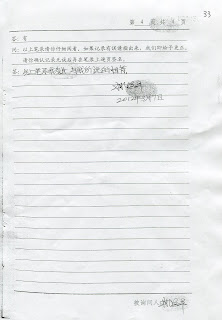 33
第 4 页 共 4 页
答：有
问：以上笔录请你仔细阅看，如果记录有误请指出来，我们即给予更正。
请你确认记录无误后再在笔录上逐页签名。
答：以上笔录我看过 与我所说的相符
2012年3月7日
被询问人